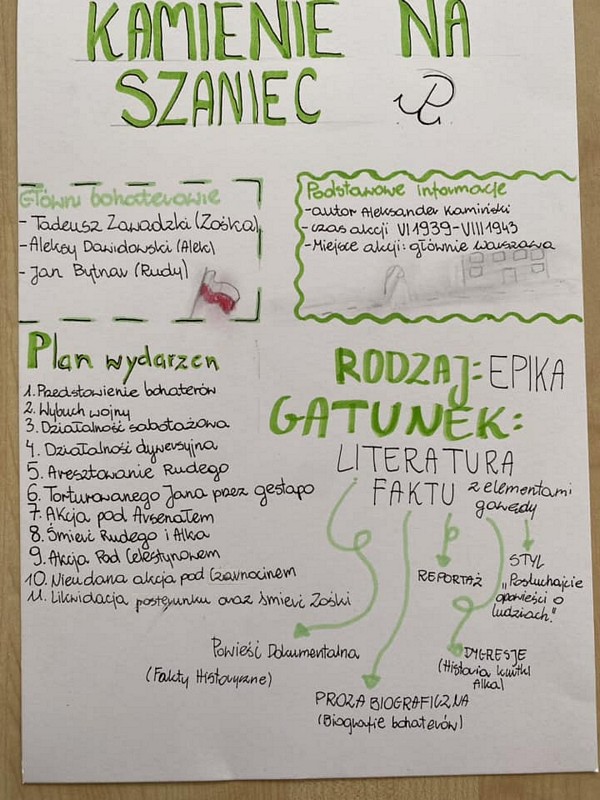 KAMIENIE NA
SZANIEC
Główni bohaterowie
- Tadeusz Zawadzki (Zośka)
- Aleksy Dawidowski (Alek)
- Jan Bytnar (Rudy)
Podstawowe informacje
- autor Aleksander Kamiński
- czas akcji VI 1939-VIII 1943
- Miejsce akcji: głównie Warszawa
Plan wydarzen
1. Przedstowienie bohaterów
2. Wybuch wojny
3. Działalność sabotażowa
4. Działalność dywersyjna
5. Aresztowanie Rudego
6. Torturowanego Jana przez gestapo
7. Akcja pod Arsenałem
8. Śmierć Rudego i Alka
9. Akcja Pod Celestynowem
10. Nieudana akcja pod Czarnocinem
11. Likwidacja posterunku oraz śmierć Zośki
RODZAJ: EPIKA
GATUNEK:
LITERATURA
FAKTU z elementami
gawędy
REPORTAŻ
STYL
„Posłuchajcie
opowieści o
ludziach."
Powieść Dokumentalna
(Fakty Historyczne)
DYGRESJE
(Historia kurtki
Alka)
PROZA BIOGRAFICZNA
(Biografie bohaterów)